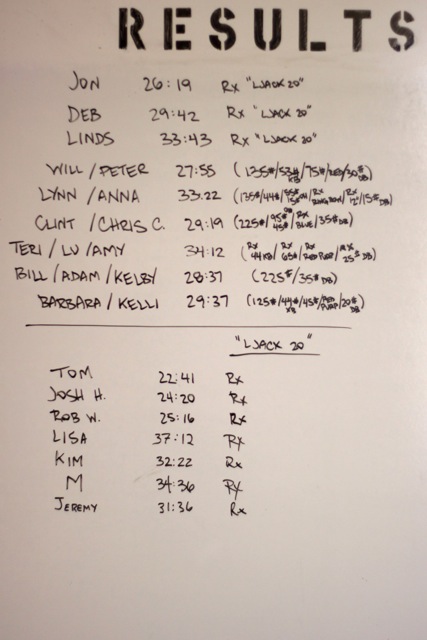 RESULTS
JON 26:19 Rx "LJACK 20"
DEB 29:42 Rx "LJACK 20"
LINDS 33:43 Rx "LJACK 20"
WILL / PETER 27:55 (135#/53# KB/75#/RED/30# DB)
LYNN / ANNA 33:22 (135#/44#/55#
CLINT / CHRIS C. 29:19 (225#/95# 45#/Rx BLUE/35# DB)
TERI / LU / AMY 34:12 (Rx 44KB/Rx 65#/Rx RED PURP/Rx 25# DB)
BILL / ADAM / KELBY 28:37 (225#/35# DB)
BARBARA / KELLI 29:37 (125#/44# KB/45#/RED PURP/20# DB)
"LJACK 20"
TOM 22:41 Rx
JOSH H. 24:20 Rx
ROB W. 25:16 Rx
LISA 37:12 Rx
KIM 32:22 Rx
M 34:36 Rx
JEREMY 31:36 Rx